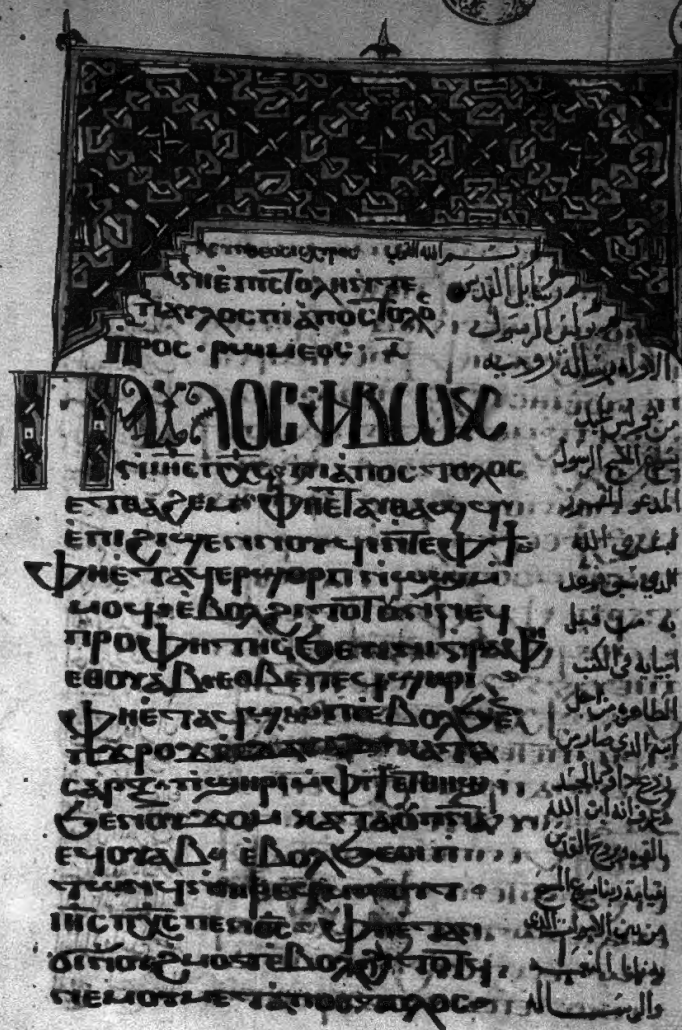 ⲛⲓⲉⲡⲓⲥⲧⲟⲗⲏ ⲛⲧⲉ
ⲡⲁⲩⲗⲟⲥ ⲡⲓⲁⲡⲟⲥⲧⲟⲗⲟⲥ
ⲡⲣⲟⲥ · ⲣⲱⲙⲉⲟⲥ · ⲁ
ⲡⲁⲩⲗⲟⲥ ⲫⲃⲱⲕ
ⲛⲓⲏⲥ ⲡⲭⲥ ⲡⲓⲁⲡⲟⲥⲧⲟⲗⲟⲥ
ⲉⲧⲑⲁϩⲉⲙ ⲫⲏⲉⲧⲁⲩⲑⲁϣϥ
ⲉⲡⲓϩⲓϣⲉⲛⲛⲟⲩϥⲓ ⲛⲧⲉ ⲫϯ
ⲫⲏⲉⲧⲁϥⲉⲣϣⲟⲣⲡ ⲛⲱϣ ⲙ
ⲙⲟϥ ⲉⲃⲟⲗ ϩⲓⲧⲟⲧⲟⲩ ⲛⲛⲉϥ
ⲡⲣⲟⲫⲏⲧⲏⲥ ϧⲉⲛ ⲛⲓⲅⲣⲁⲫⲏ
ⲉⲑⲟⲩⲁⲃ ⲉⲑⲃⲉ ⲡⲉϥϣⲏⲣⲓ
ⲫⲏⲉⲧⲁϥϣⲱⲡⲓ ⲉⲃⲟⲗ ϧⲉⲛ
ⲡϫⲣⲟϫ ⲕⲁⲧⲁ
ⲥⲁⲣⲝ ⲡϣⲏⲣⲓ ⲙⲫϯ ⲉⲧⲑⲏϣ
ϧⲉⲛ ⲟⲩϫⲟⲙ ⲕⲁⲧⲁ ⲟⲩⲡⲛⲁ
ⲉϥⲟⲩⲁⲃ ⲉⲃⲟⲗ ϧⲉⲛ ⲡ
ⲧⲱⲛϥ ⲛⲛⲓⲣⲉϥⲙⲱⲟⲩⲧ
ⲓⲏⲥ ⲡⲭⲥ ⲡⲉⲛⲟⲥ ⲫⲏⲉⲧⲁⲛ
ϭⲓ ⲛⲟⲩϩⲙⲟⲧ ⲉⲃⲟⲗ ϩⲓⲧⲟⲧϥ
ⲛⲉⲙ ⲟⲩⲙⲉⲧⲁⲡⲟⲥⲧⲟⲗⲟⲥ
بسم الله
رسايل القديس
بولس الرسول
الاوله رساله روميه
من بولس
يسوع المسيح الرسول
المدعو
لبشرى الله
الذي سبق فوعد
به من قبل
انبيايه في الكتب
الطاهره من اجل
ابنه الذي صار من
زرع داود بالجسد
ابن الله
بالقوه بروح القدس
بقيامة يسوع المسيح
من بين الاموات الذي
والرساله